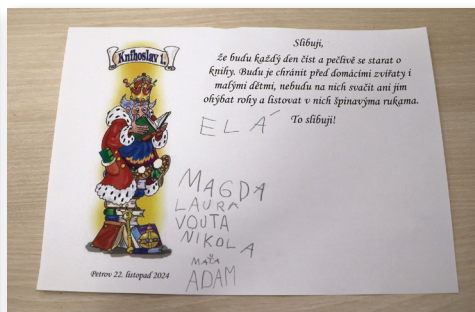 Knihoslav I.
Slibuji,
že budu každý den číst a pečlivě se starat o
knihy. Budu je chránit před domácími zvířaty i
malými dětmi, nebudu na nich svačit ani jim
ohýbat rohy a listovat v nich špinavýma rukama.
To slibuji!
ELÁ
MAGDA
LAURA
VOUTA
NIKOLA
MAŤA
ADAM
Petrov 22. listopad 2024